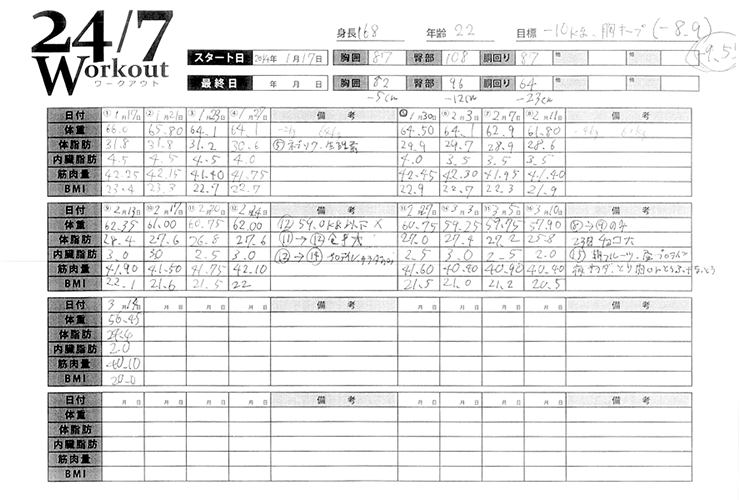 24/7
Workout
ワークアウト
身長 168 年齢 22 目標 -10kg、胸キープ (-8.9)
-9.55
スタート日 2014年 1月17日 胸囲 87 臀部 108 胴回り 87 他 他
最終日 年 月 日 胸囲 82 臀部 96 胴回り 64 他 他
-5cm -12cm -23cm
日付 ①1月17日 ②1月21日 ③1月23日 ④1月27日 備考 1月30日 ⑥2月3日 ⑦2月7日 ⑧2月11日 備考
体重 66.0 65.80 64.1 64.1 64.50 64.1 62.9 61.80
体脂肪 31.8 31.8 31.2 30.6 29.9 29.7 28.9 28.6
内臓脂肪 4.5 4.5 4.5 4.0 4.0 3.5 3.5 3.5
筋肉量 42.25 42.15 41.40 41.75 42.45 42.30 41.95 41.40
BMI 23.4 23.3 22.7 22.7 22.9 22.7 22.3 21.9
日付 ⑨2月13日 ⑩2月17日 ⑪2月20日 ⑫2月24日 備考 ⑬2月27日 ⑭3月3日 ⑮3月5日 ⑯3月10日 備考
体重 62.35 61.00 60.75 62.00 ⑫ 59.0kg以下 × 60.75 59.25 59.95 57.90
体脂肪 28.4 27.6 26.8 27.6 ⑪→⑫ 27.0 27.4 27.2 25.8
内臓脂肪 3.0 30 2.5 3.0 2.5 3.0 2.5 2.0
筋肉量 41.90 41.50 41.75 42.10 41.60 40.40 40.90 40.40
BMI 22.1 21.6 21.5 22 21.5 21.0 21.2 20.5
日付 3月14日 月 日 月 日 月 日 備考 月 日 月 日 月 日 月 日 備考
体重 56.45
体脂肪 24.4
内臓脂肪 2.0
筋肉量 40.10
BMI 20.0
日付 月 日 月 日 月 日 月 日 備考 月 日 月 日 月 日 月 日 備考
体重
体脂肪
内臓脂肪
筋肉量
BMI